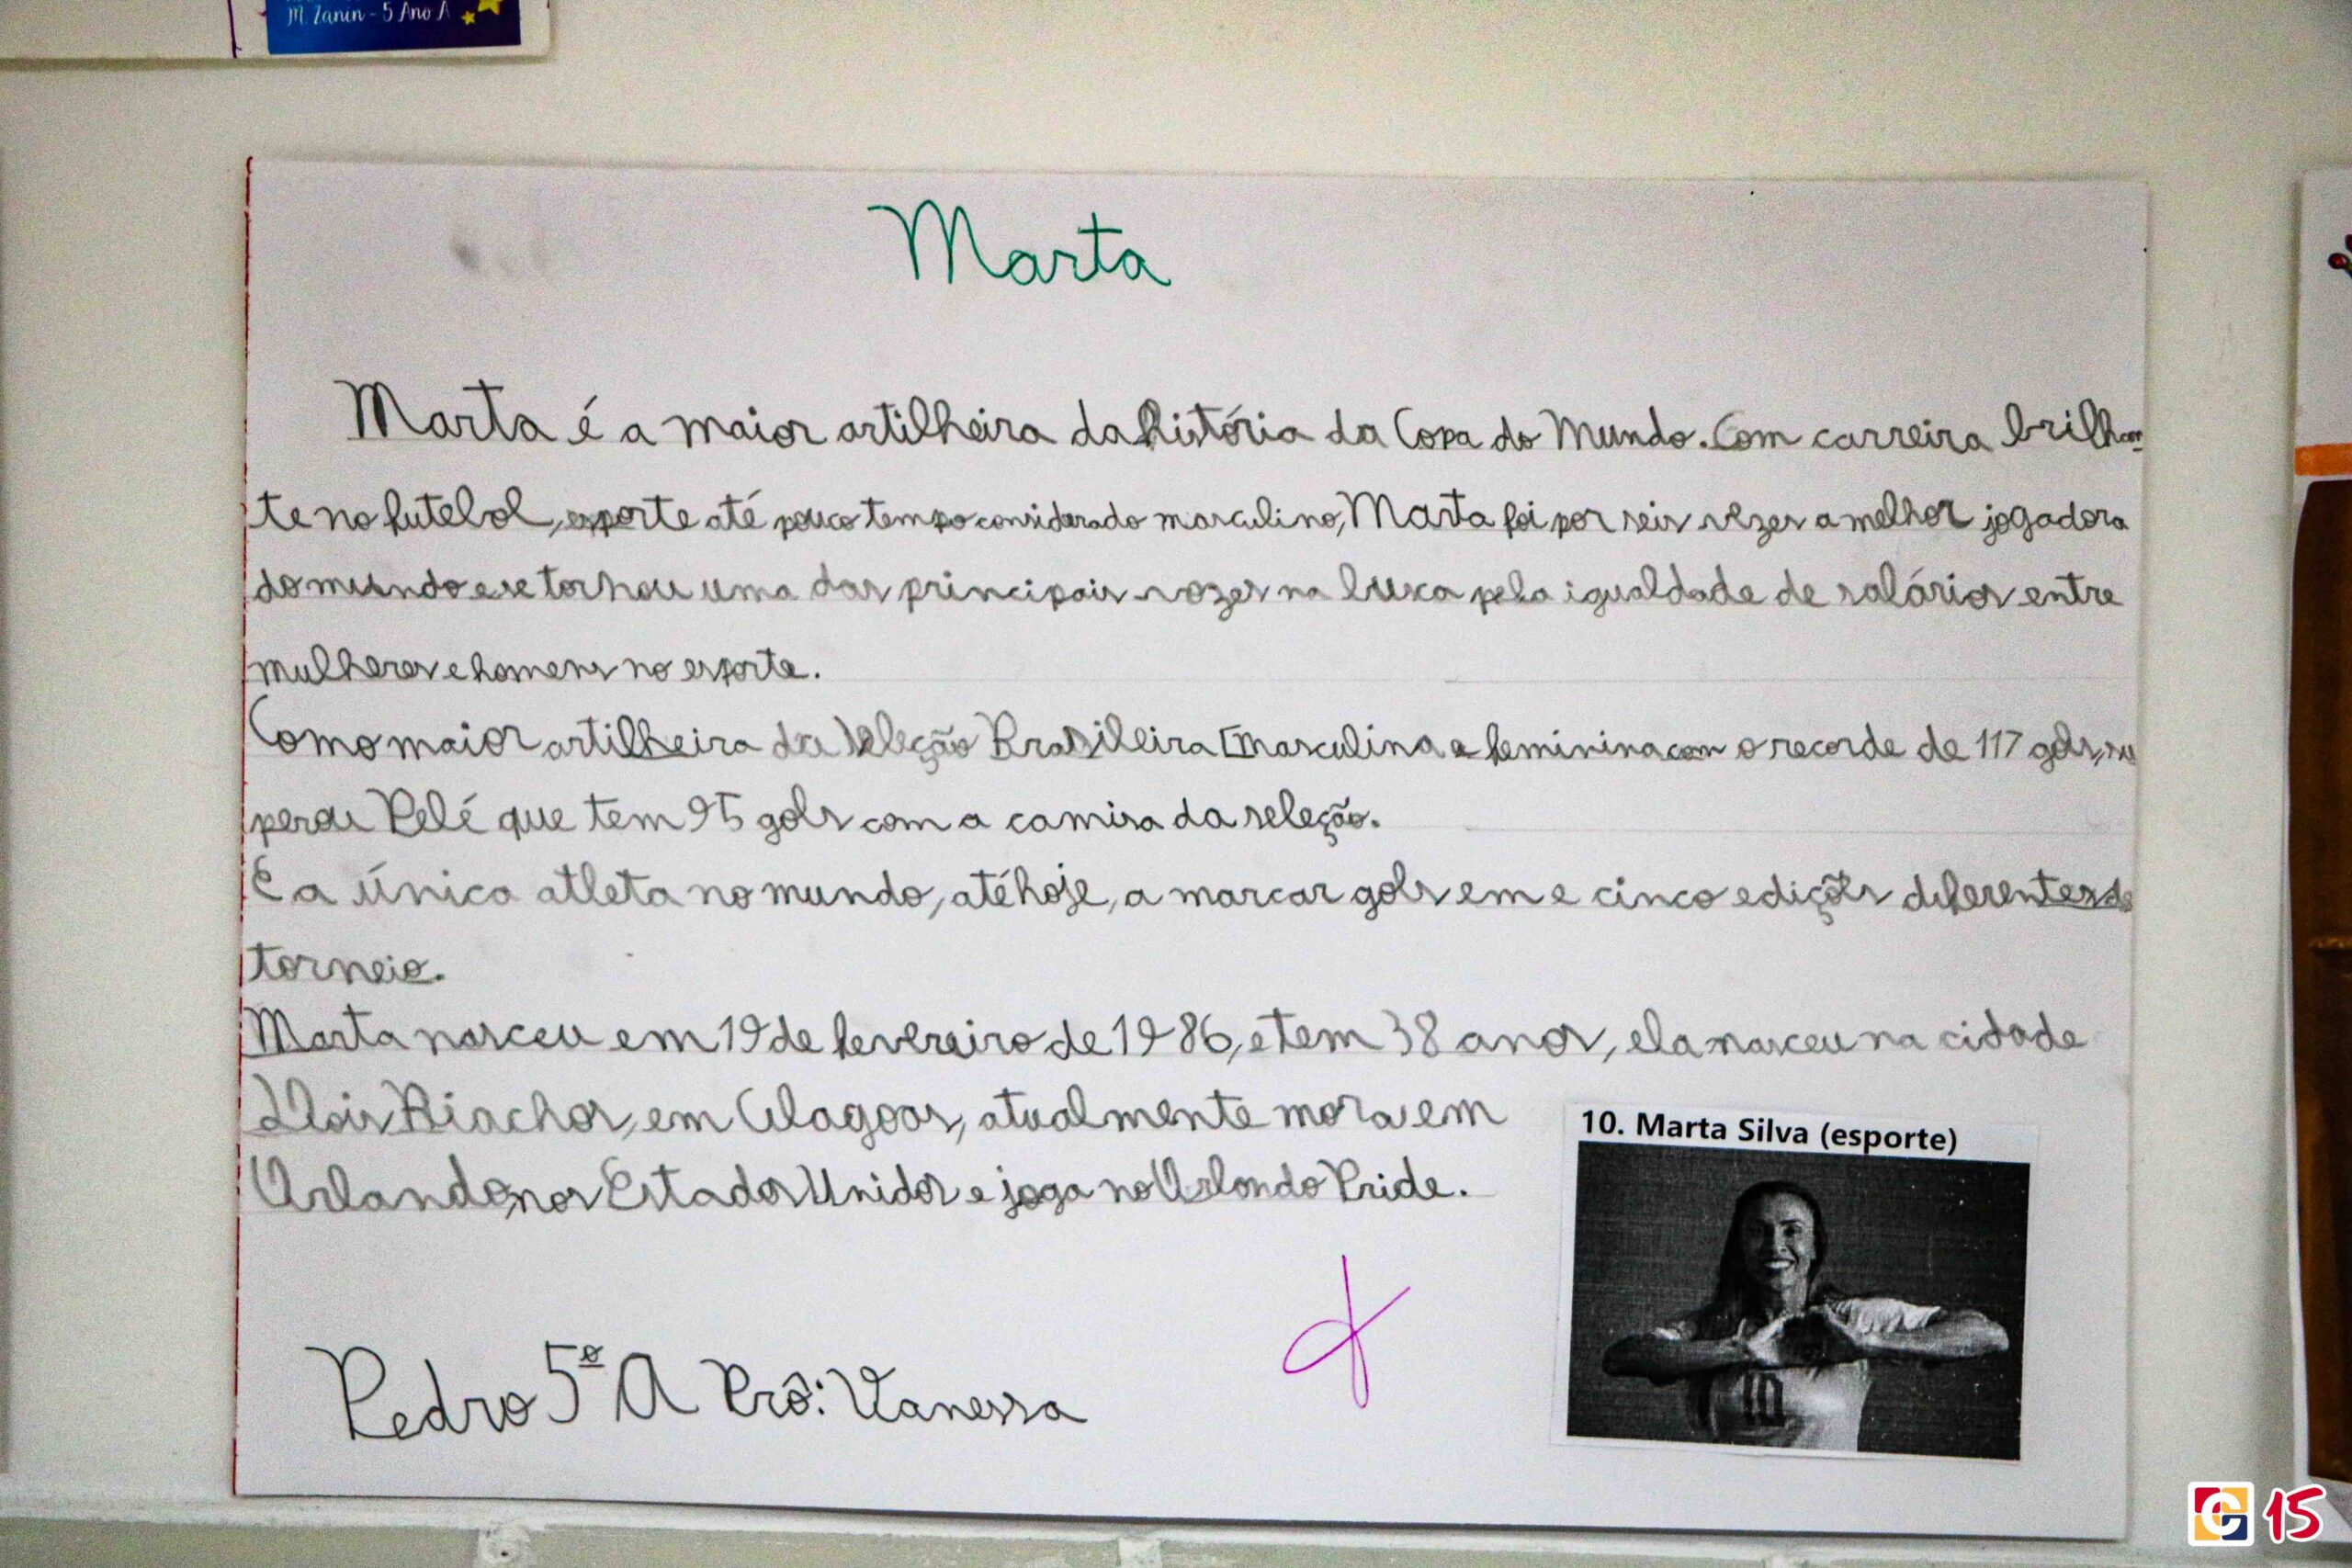 M. Zanin - 5 Ano A
Marta
Marta é a maior artilheira da história da Copa do Mundo. Com carreira brilhan-
te no futebol, esporte até pouco tempo considerado masculino, Marta foi por seis vezes a melhor jogadora
do mundo e se tornou uma das principais vozes na luxa pela igualdade de salários entre
mulheres e homens no esporte.
Como maior artilheira da Seleção Brasileira [masculina e feminina com o recorde de 117 gols, su
pera Pelé que tem 95 gols com a camisa da seleção.
É a única atleta no mundo, até hoje, a marcar gols em e cinco edições diferentes do
torneio.
Marta nasceu em 19 de fevereiro de 1986, e tem 38 anos, ela nasceu na cidade
Dois Riachos, em Alagoas, atualmente mora em
Orlando, nos Estados Unidos e joga no Orlando Pride.
10. Marta Silva (esporte)
10
Pedro 5º A Prô: Vanessa
15